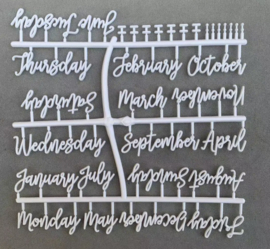 June Tuesday
Thursday February October
Saturday March November
Wednesday September April
January July Sunday August
Monday May December Friday